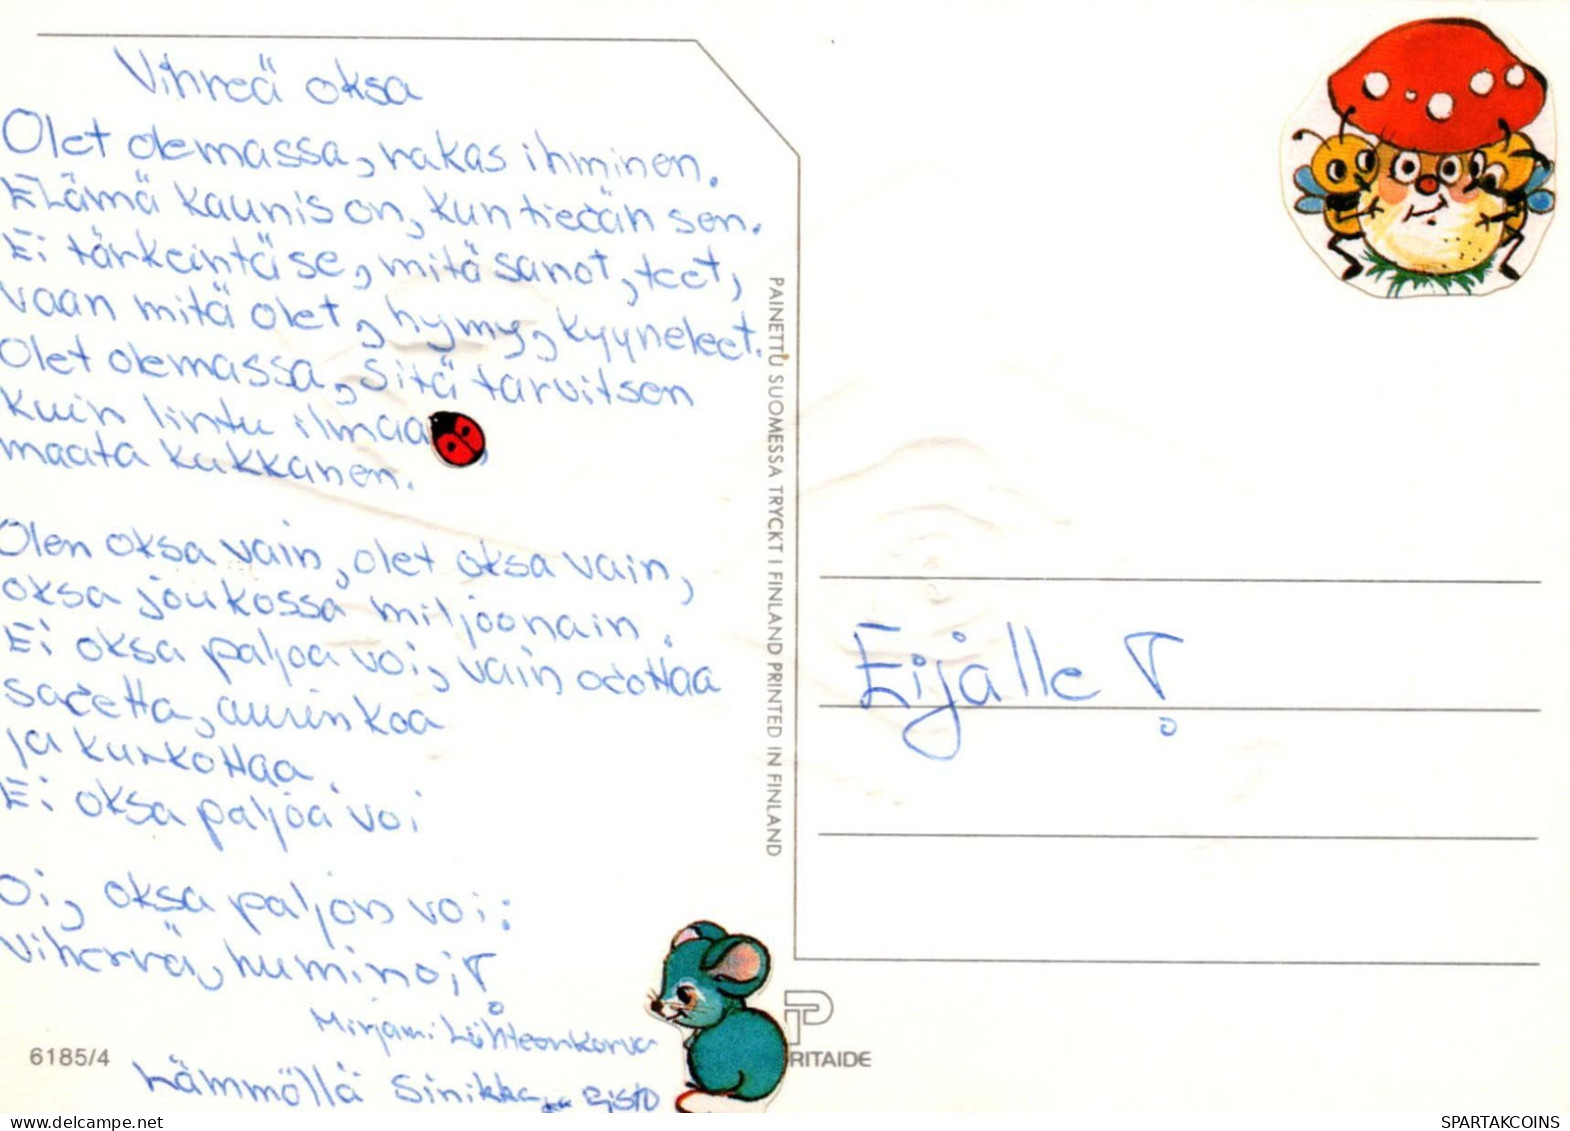 Vihreä oksa
Olet olemassa, rakas ihminen.
Elämä kaunis on, kun tiedän sen.
Ei tärkeintä se, mitä sanot, teet,
vaan mitä olet, hymy, kyyneleet.
Olet olemassa, sitä tarvitsen
kuin lintu ilmaa,
maata kukkanen.
Olen oksa vain, olet oksa vain,
oksa joukossa miljoonain.
Ei oksa paljoa voi, vain odottaa
sadetta, aurinkoa
ja kurkottaa.
Ei oksa paljoa voi
Oi, oksa paljon voi:
vihervä, huminoi!
Mirjami Lähteenkorva
Lämmöllä Sinikka ja Risto
6185/4
PAINETTU SUOMESSA TRYCKT I FINLAND PRINTED IN FINLAND
Eijalle!
RITAIDE
SPARTAKCOINS
https://www.delcampe.net